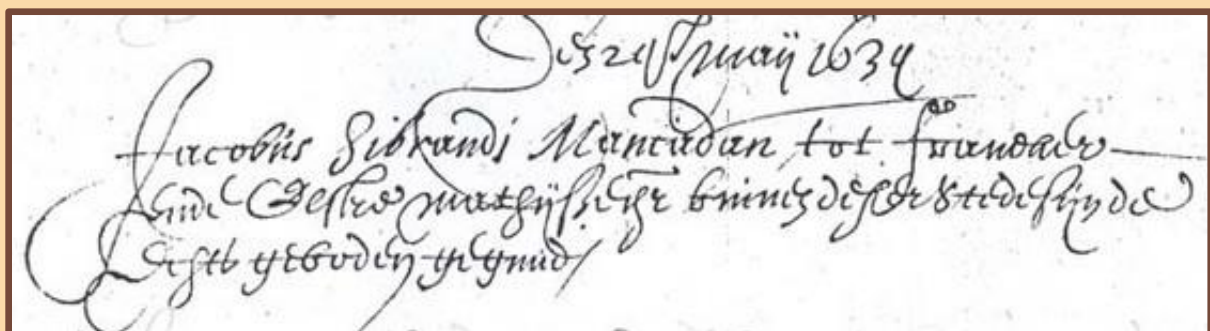 Den 24 Maij 1634
Jacobus Sibrandi Mancadan tot Franeker
ende Eelske Mathijs binnen deser Stede sijn de
Echts geboden gegund